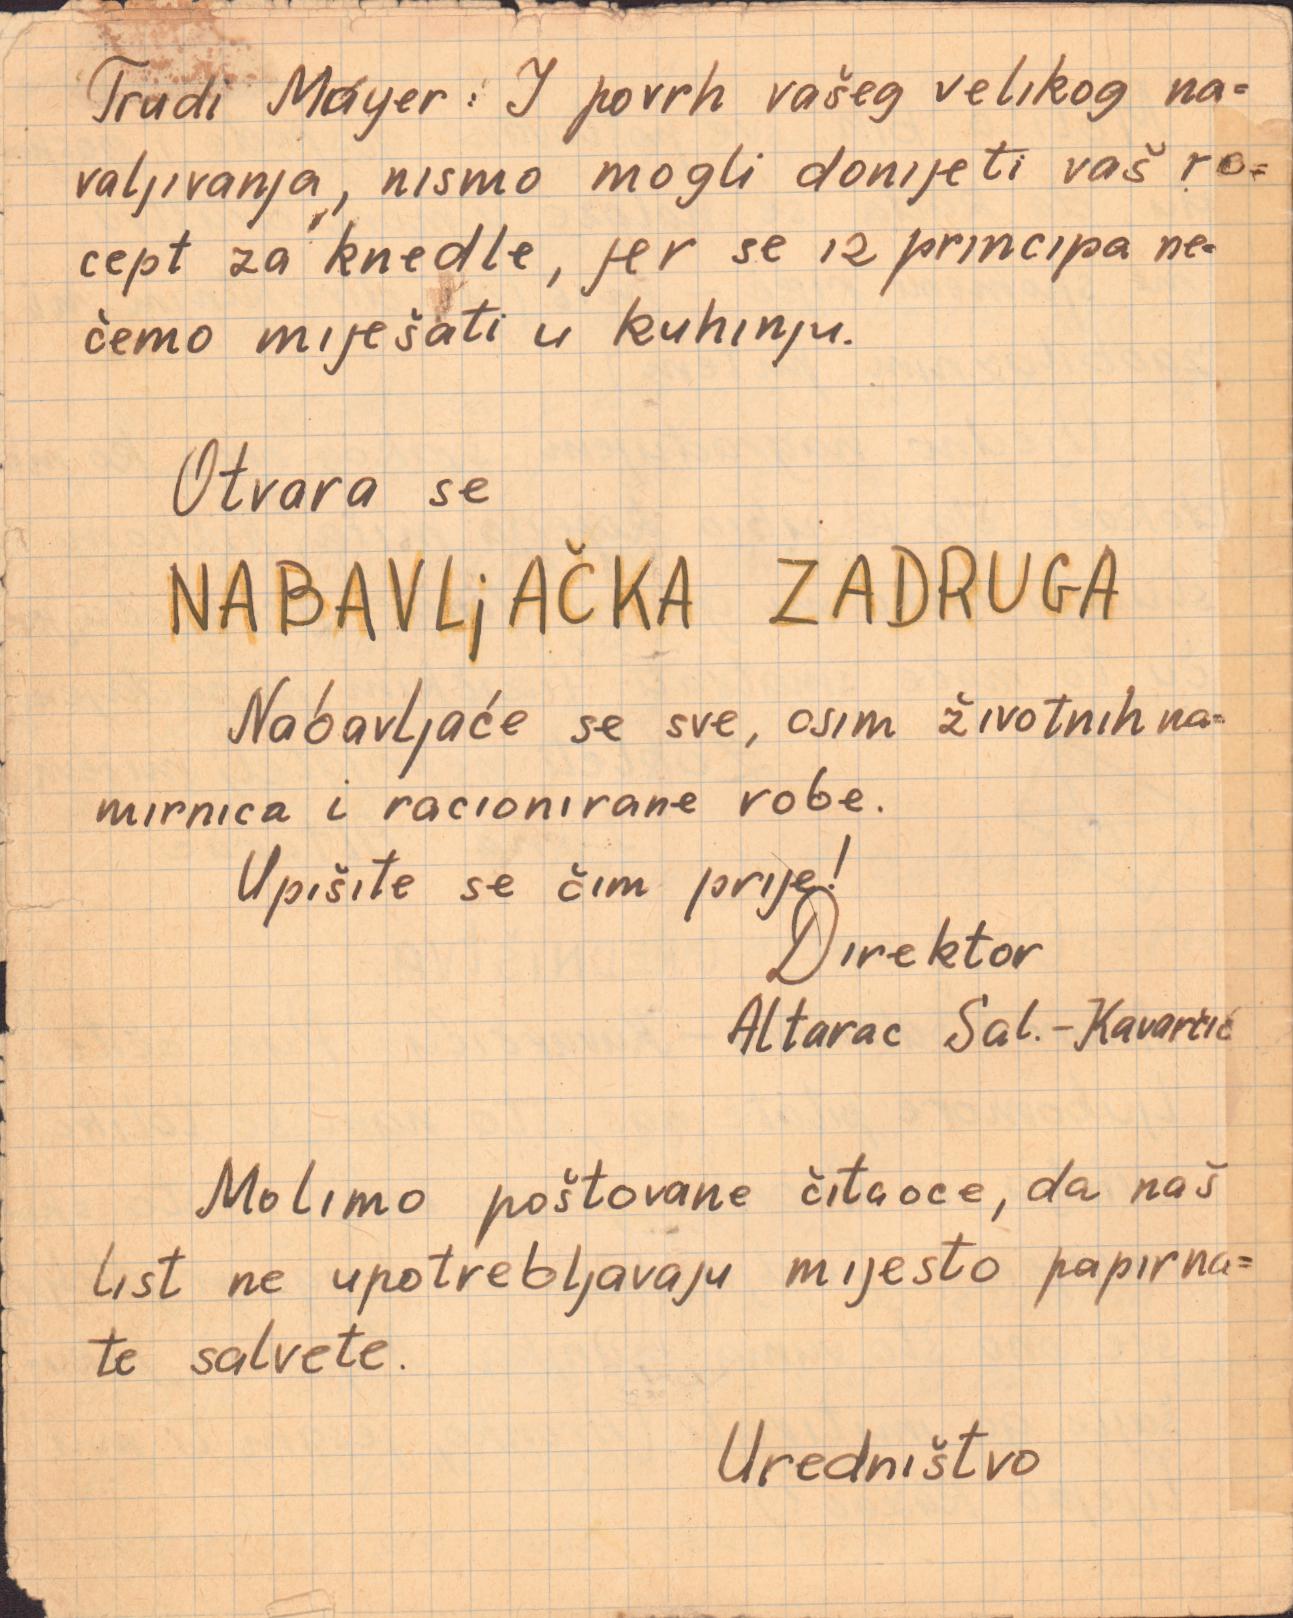 Trudi Mayer: I povrh vašeg velikog na=
valjivanja, nismo mogli donijeti vaš re=
cept za knedle, jer se iz principa ne=
ćemo miješati u kuhinju.
Otvara se
NABAVLjAČKA ZADRUGA
Nabavljaće se sve, osim životnih na=
mirnica i racionirane robe.
Upišite se čim prije!
Direktor
Altarac Sal. - Kavartić
Molimo poštovane čitaoce, da naš
list ne upotrebljavaju mijesto papirna=
te salvete.
Uredništvo